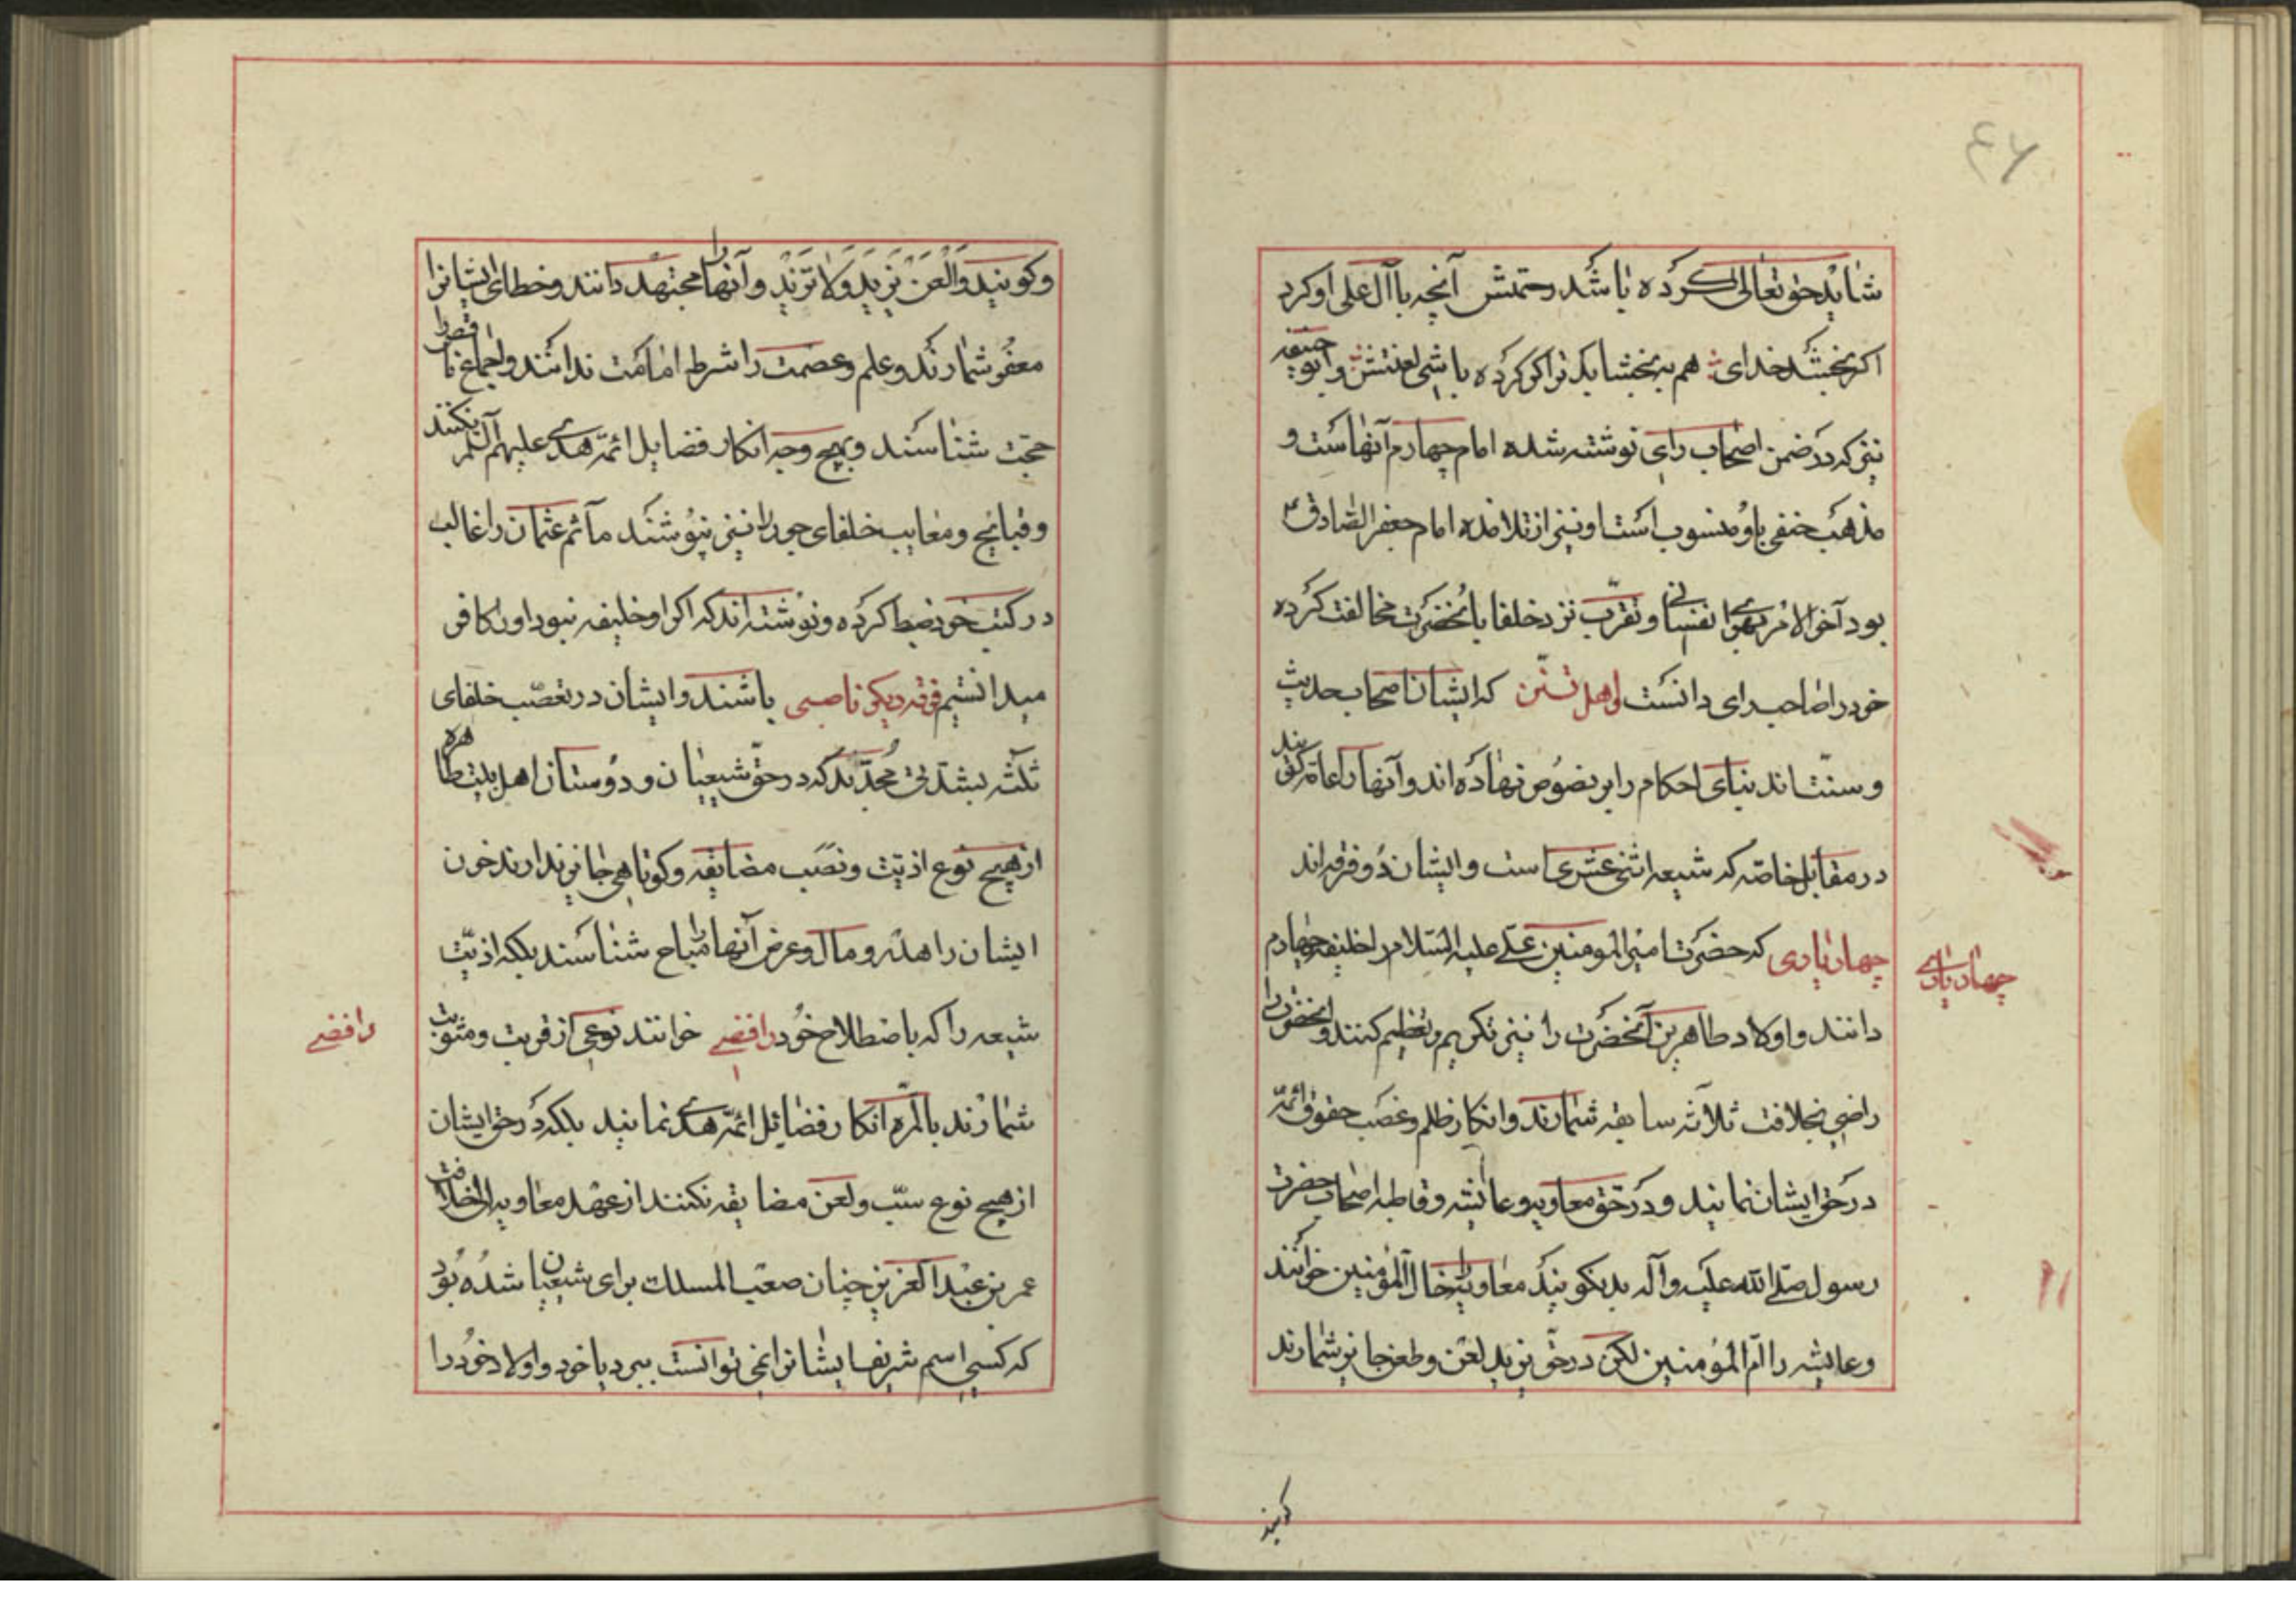 ۴۶
شاید حق تعالی کرده باشد رحمتش آنچه با آل علی او کرد
اکر بخشد خدای هم ببخشاید تراکر کرده باشی لعنتش وابو حنیفه
نیز که در ضمن اصحاب رای نوشته شده امام چهارم آنهاست و
مذهب حنفی باو منسوب است او نیز از تلامذه امام جعفر الصادق ع
بود آخر الامر بهوای نفسانی و تقرب نزد خلفا با آنحضرت مخالفت کرده
خود را صاحب رای دانست واهل تسنن که ایشان اصحاب حدیث
و سنت اند بنای احکام را بر نصوص نهاده اند و آنها را عامه کویند
در مقابل خاصه که شیعه اثنی عشری است و ایشان دو فرقه اند
چهار یاری که حضرت امیر المومنین علی علیه السلام را خلیفه چهارم
چهار یاری
دانند و اولاد طاهرین آنحضرت را نیز تکریم و تعظیم کنند و آنحضرت را
راضی بخلافت ثلاثه سابقه شمارند و انکار ظلم و غصب حقوق ائمه
در حق ایشان نمایند و در حق معاویه و عایشه و قاطبه اصحاب حضرت
رسول صلی الله علیه وآله بد نکویند معاویه را خال المؤمنین خوانند
و عایشه را ام المؤمنین لکن در حق یزید لعن و طعن جایز شمارند
کویند
وکویند وَالْعَنْ یَزِیدَ وَلا تَزِیدْ و آنها را مجتهد دانند و خطای ایشانرا
معفو شمارند و علم و عصمت را شرط امامت ندانند و اجماع ناقص را
حجت شناسند و بهیچ وجه انکار فضایل ائمه هدی علیهم السلم نکنند
و قبائح و معایب خلفای جور را نیز نپوشند مآثم عثمان را غالب
در کتب خود ضبط کرده و نوشته اند که اکر او خلیفه نبود او را کافر
میدانستیم فرقه دیکر ناصبی باشند و ایشان در تعصب خلفای
ثلثه بشدتی مجدند که در حق شیعیان و دوستان اهل بیت طاهره
از هیچ نوع اذیت و نصب مضایقه و کوتاهی جایز ندارند خون
ایشان را هدر و مال و عرض آنها را مباح شناسند بلکه اذیت
شیعه را که باصطلاح خود رافضی خوانند نوعی از قربت و مثوبت
رافضی
شمارند بالمره انکار فضائل ائمه هدی نمایند بلکه در حق ایشان
از هیچ نوع سب و لعن مضایقه نکنند از عهد معاویه الی خلافت
عمر بن عبد العزیز چنان صعب المسلک برای شیعیان شده بود
که کسی اسم شریف ایشانرا نمی توانست ببرد یا خود و اولاد خود را